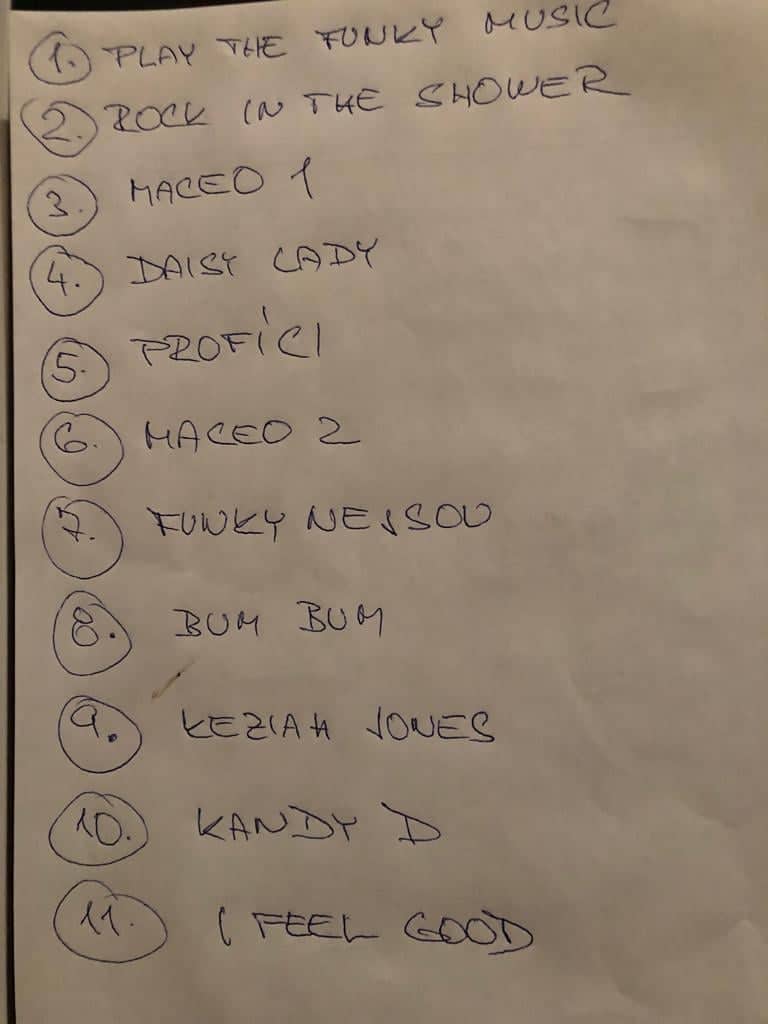 1. PLAY THE FUNKY MUSIC
2. ROCK IN THE SHOWER
3. MACEO 1
4. DAISY LADY
5. PROFÍCI
6. MACEO 2
7. FUNKY NESSOU
8. BUM BUM
9. KEZIAH JONES
10. KANDY D
11. I FEEL GOOD